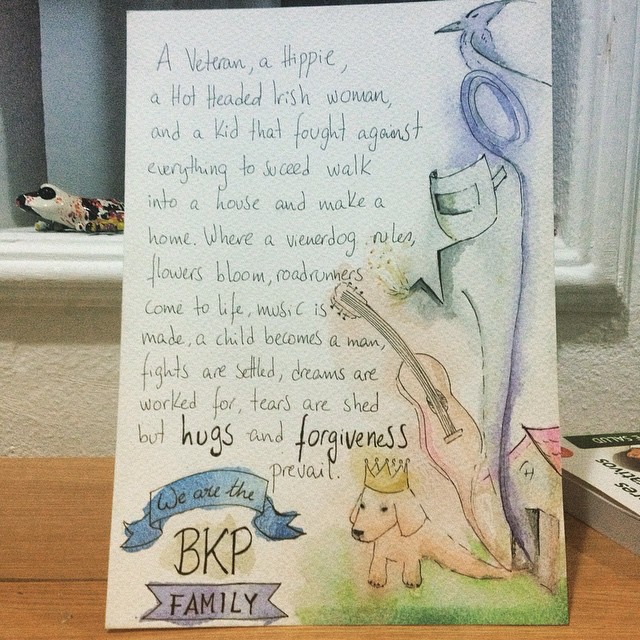 A Veteran, a Hippie,
a Hot Headed Irish woman,
and a Kid that fought against
everything to suceed walk
into a house and make a
home. Where a vienerdog rules,
flowers bloom, roadrunners
come to life, music is
made, a child becomes a man,
fights are settled, dreams are
worked for, tears are shed
but hugs and forgiveness
prevail.
We are the
BKP
FAMILY
SALUD